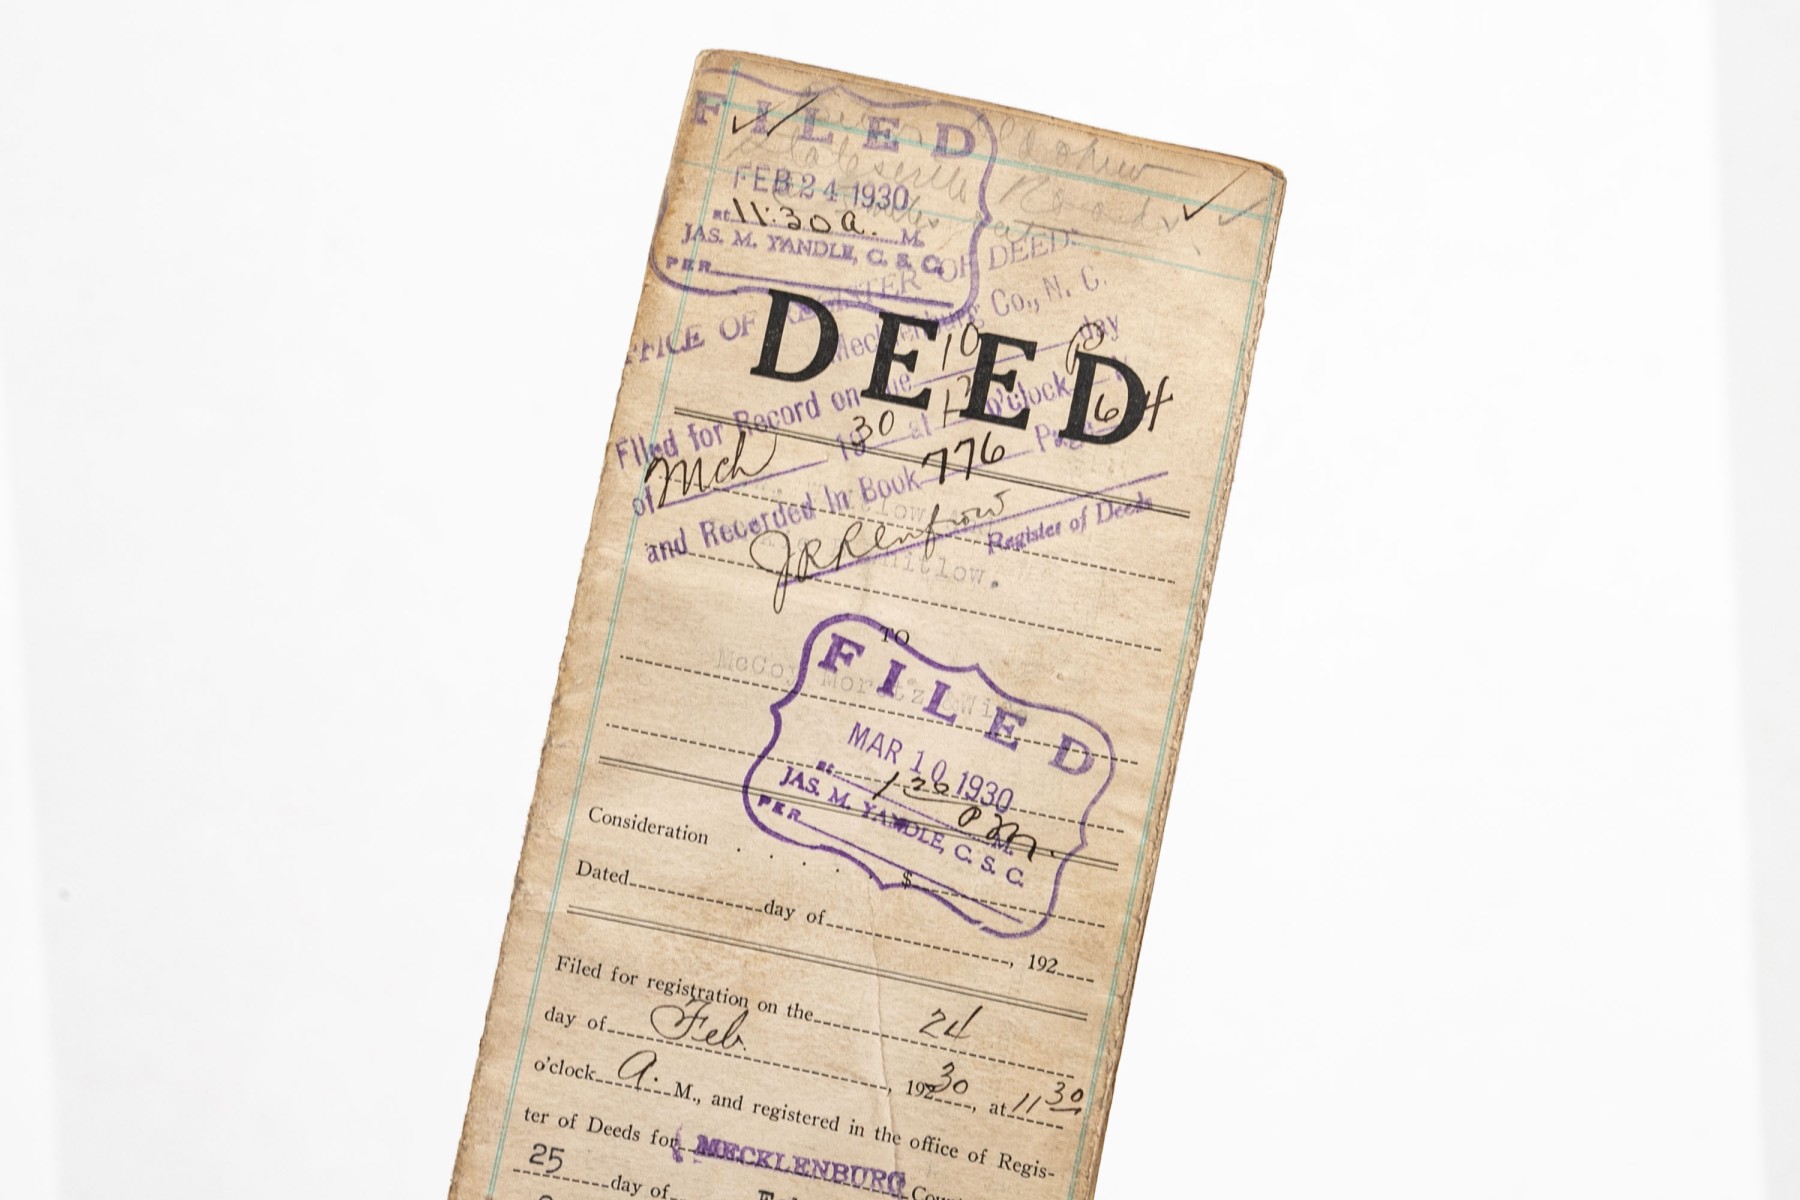 FILED
Road
FEB 24 1930
at 11:30 a. M.
JAS. M. YANDLE, C. S. C.
PER
OFFICE OF REGISTER OF DEEDS
Mecklenburg Co., N. C.
DEED
Filed for Record on the 10 day
of Mch 1930 at o'clock P
and Recorded In Book 776 Page 64
J R Renfrow
Register of Deeds
TO
McCoy Moretz
FILED
MAR 10 1930
at 1 20 PM. M.
JAS. M. YANDLE, C. S. C.
PER
Consideration . . . . $
Dated day of , 192
Filed for registration on the 24
day of Feb. , 192 30 , at 11 30
o'clock a. M., and registered in the office of Regis-
ter of Deeds for MECKLENBURG
25 day of